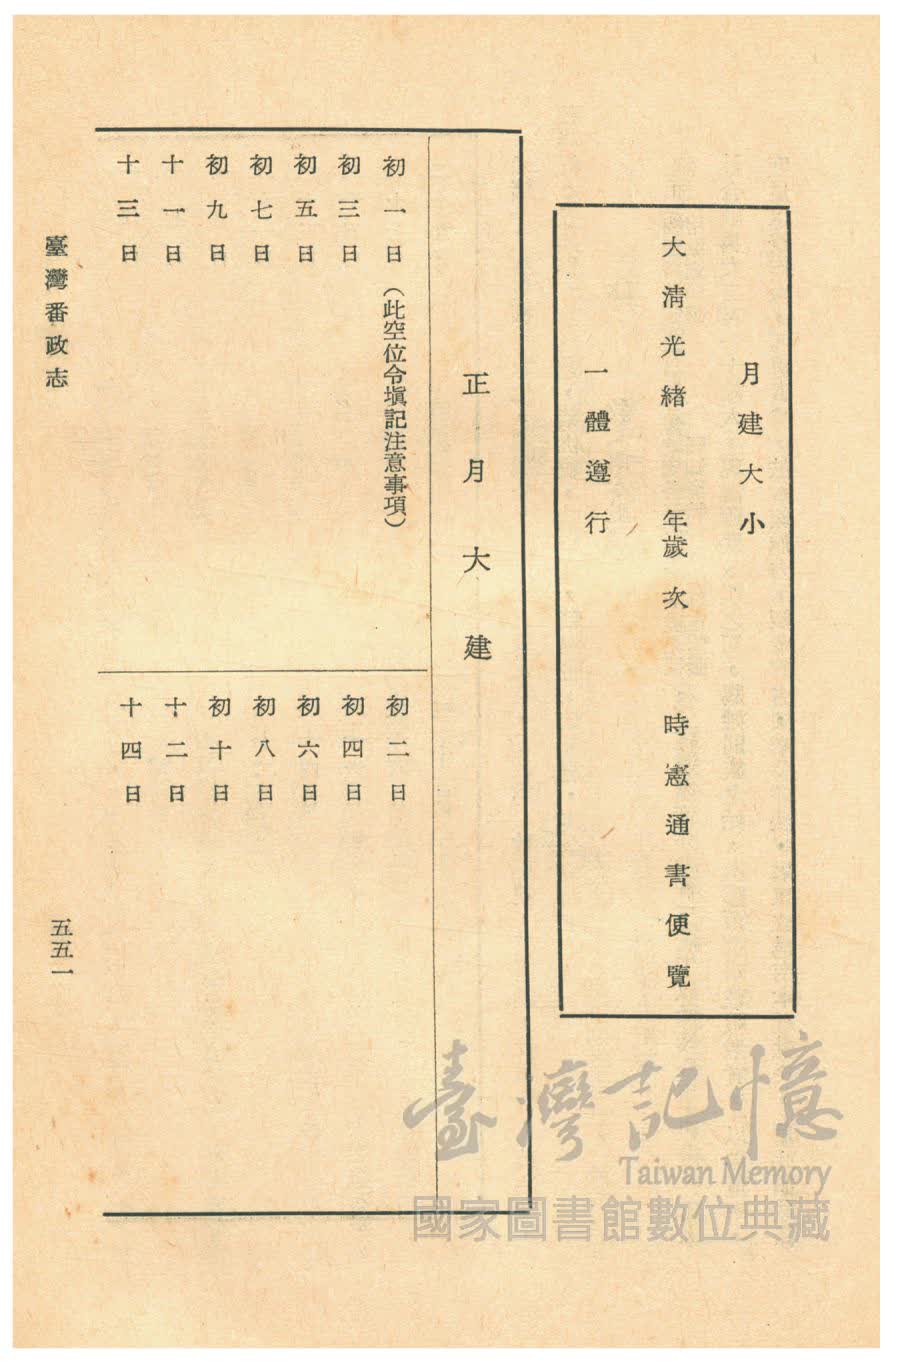 月建大小
大淸光緒　年歲次　時憲通書便覽
一體遵行
正月大建
初一日（此空位令塡記注意事項）
初三日
初五日
初七日
初九日
十一日
十三日
初二日
初四日
初六日
初八日
初十日
十二日
十四日
臺灣番政志
五五一
臺灣記憶
Taiwan Memory
國家圖書館數位典藏